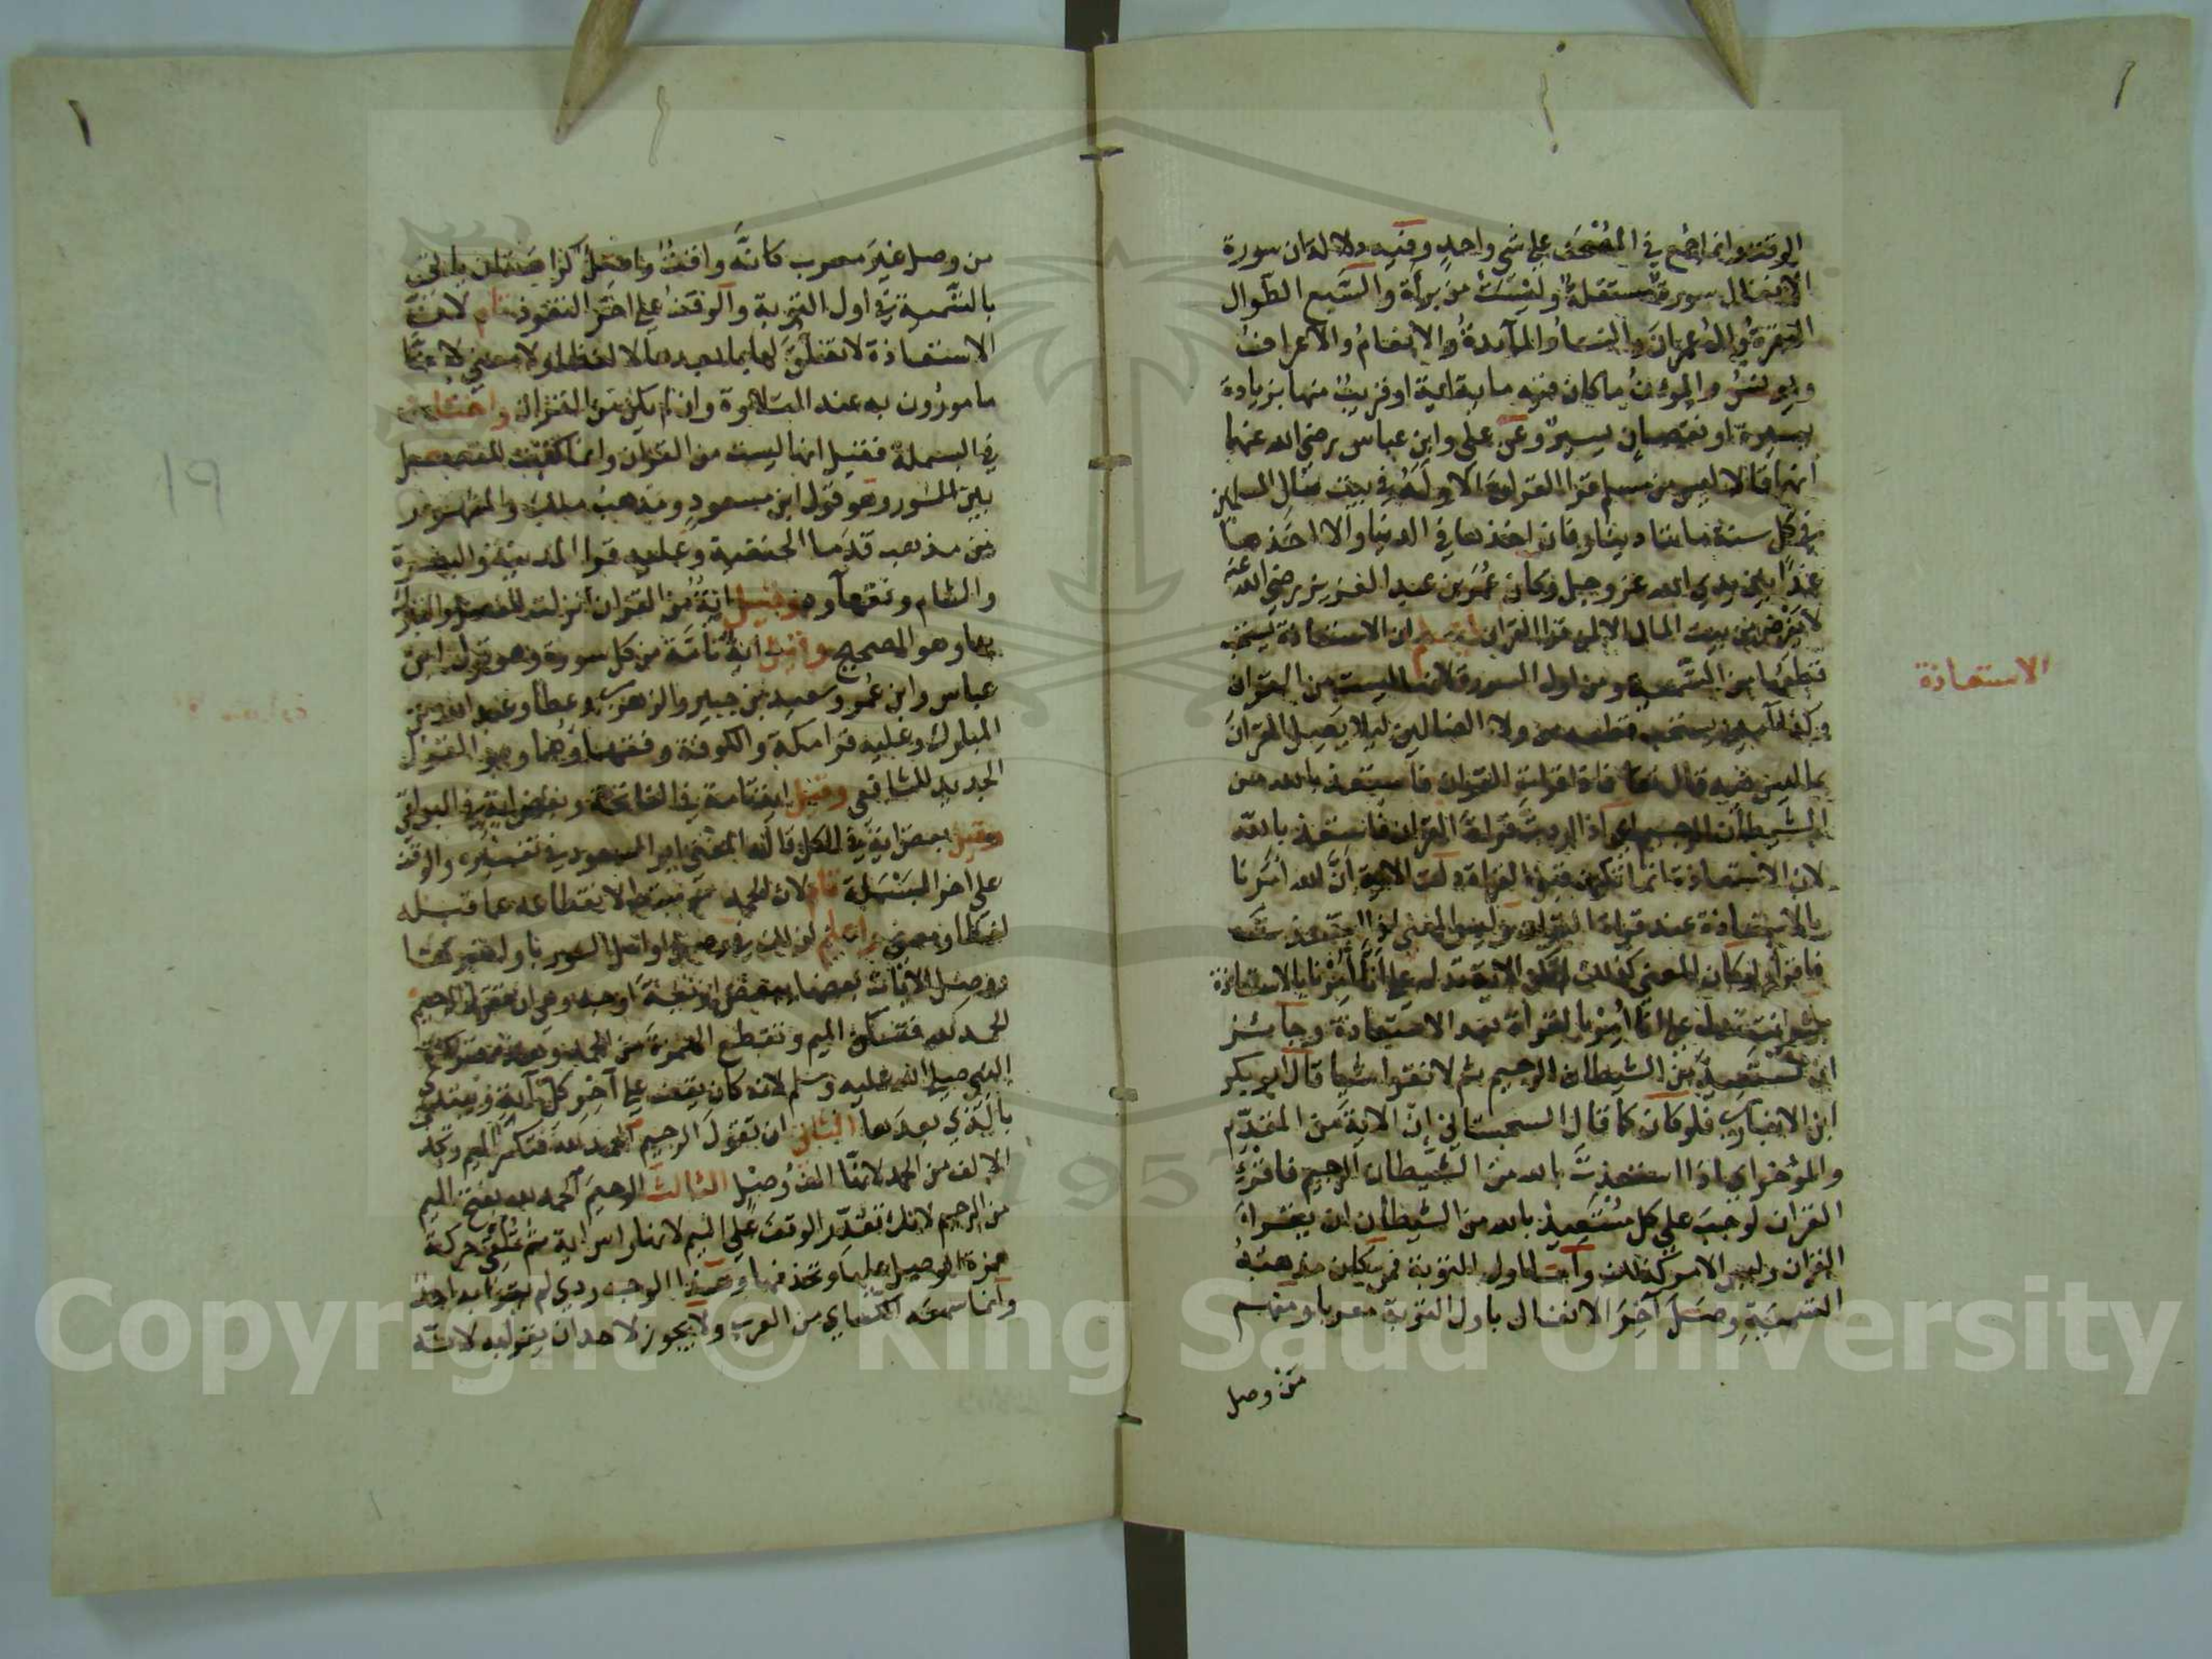 الوقف وانما اجمع في المصحف على شي واحد وفيه دلالة ان سورة
الانفال سورة مستقلة وليست من براة والسبع الطوال
البقرة وال عمران والنسا والمآئدة والانعام والاعراف
ويونس والمؤن ما كان فيه ماية اية او قريب منها بزيادة
يسيرة او نقصان يسير وعن علي وابن عباس رضي الله عنهما
انهما قالا ليس من مسلم قرا القران الا وله في بيت مال المسلمين
في كل سنة مايتا دينار فان اخذها في الدنيا والا اخذها
غدا بين يدي الله عز وجل وكان عمر بن عبد العزيز رضي الله عنه
لا يفرض من بيت المال الا لمن قرا القران اعلم ان الاستعاذة يستحب
قطعها من التسمية ومن اول السورة لانها ليست من القران
وكذا آمين يستحب قطعه من ولا الضالين ليلا يصل القران
بما ليس فيه قال تعا فاذا قرات القران فاستعذ بالله من
الشيطان الرجيم اي اذا اردت قراة القران فاستعذ بالله
لان الاستعاذة انما تكون قبل القراة دلت الاية ان الله امرنا
بالاستعاذة عند قراة القران وليس المعنى اذا استعذت
فاقرا ولو كان المعنى كذلك لم تكن الاية تدل على انا امرنا بالاستعاذة
بل كانت تدل على انا امرنا بالقراة بعد الاستعاذة وجائز
ان تستعيذ من الشيطان الرجيم ثم لا تقرا شيا قال ابو بكر
ابن الانباري فلو كان كما قال السجستاني ان الاية من المقدم
والمؤخر اي اذا استعذت بالله من الشيطان الرجيم فاقرا
القران لوجب على كل مستعيذ بالله من الشيطان ان يقرا
القران وليس الامر كذلك واما اول التوبة فمن كان مذهبه
التسمية وصل آخر الانفال باول التوبة معربا ومنهم
من وصل
الاستعاذة
من وصل غير معرب كانه واقف واصل
بالتسمية في اول التوبة والوقف على اخر التعوذ تام لان
الاستعاذة لا تعلق لها بما بعدها لا لفظا ولا معنى لانا
مامورون به عند التلاوة وان لم يكن من القران واختلف
في البسملة فقيل انها ليست من القران وانما كتبت للفصل
بين السور وهو قول ابن مسعود ومذهب ملك والمشهور
من مذهب قدما الحنفية وعليه قرا المدينة والبصرة
والشام وفقهآوها وقيل اية من القران انزلت للفصل والتبرك
بها وهو الصحيح وقيل اية تامة من كل سورة وهو قول ابن
عباس وابن عمر وسعيد بن جبير والزهري وعطا وعبد الله بن
المبارك وعليه قرا مكة والكوفة وفقهاوهما وهو القول
الجديد للشافعي وقيل اية تامة في الفاتحة وبعض اية في البواقي
وقيل بعض اية في الكل قاله المفتي ابو السعود في تفسيره والوقف
على اخر البسملة تام لان الحمد مبتدا لانقطاعه عما قبله
لفظا ومعنى واعلم ان لك في وصل اوائل السور باواخرها
ووصل الايات بعضها ببعض اربعة اوجه وهي ان تقول الرحيم
الحمد لله فتسكن الميم وتقطع الهمزة من الحمد وهذه قراة
النبي صلى الله عليه وسلم لانه كان يقف على آخر كل آية ويبتدي
بالذي بعدها الثاني ان تقول الرحيم الحمد لله فتكسر الميم وتحذف
الالف من الحمد لانها الف وصل الثالث الرحيم الحمد لله بفتح الميم
من الرحيم لانك تقدر الوقف على الميم لانها راس اية ثم تلقي حركة
همزة الوصل عليها وتحذفها وهذا الوجه ردي لم يقرا به احد
وانما سمعه الكساي من العرب ولا يجوز لاحد ان يقرا به لانه
19
Copyright © King Saud University
1957